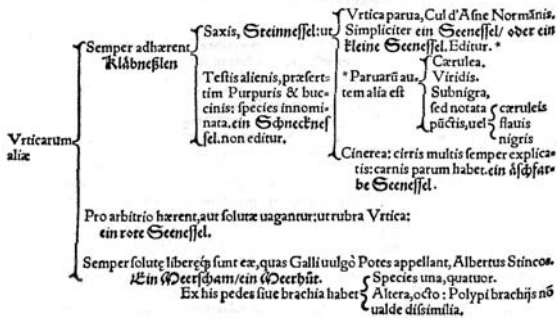 Vrticarum
aliæ
Semper adhærent
Kläbneßlen
Saxis, Steinnessel: ut
Vrtica parua, Cul d'Asne Normānis.
Simpliciter ein Seenessel/ oder ein
kleine Seenessel. Editur. *
*Paruarū au-
tem alia est
Cærulea.
Viridis.
Subnigra,
sed notata
pūctis, uel
cæruleis
flauis
nigris
Cinerea: cirris multis semper explica-
tis: carnis parum habet. ein äschfar-
be Seenessel.
Testis alienis, præser-
tim Purpuris & buc-
cinis: species innomi-
nata. ein Schnecknes
sel. non editur.
Pro arbitrio hærent, aut solutæ uagantur: ut rubra Vrtica:
ein rote Seenessel.
Semper solutę liberęq́ȝ sunt eæ, quas Galli uulgò Potes appellant, Albertus Stincos.
Ein Meerscham/ ein Meerhůt.
Ex his pedes siue brachia habet
Species una, quatuor.
Altera, octo: Polypi brachijs nō
ualde dissimilia.